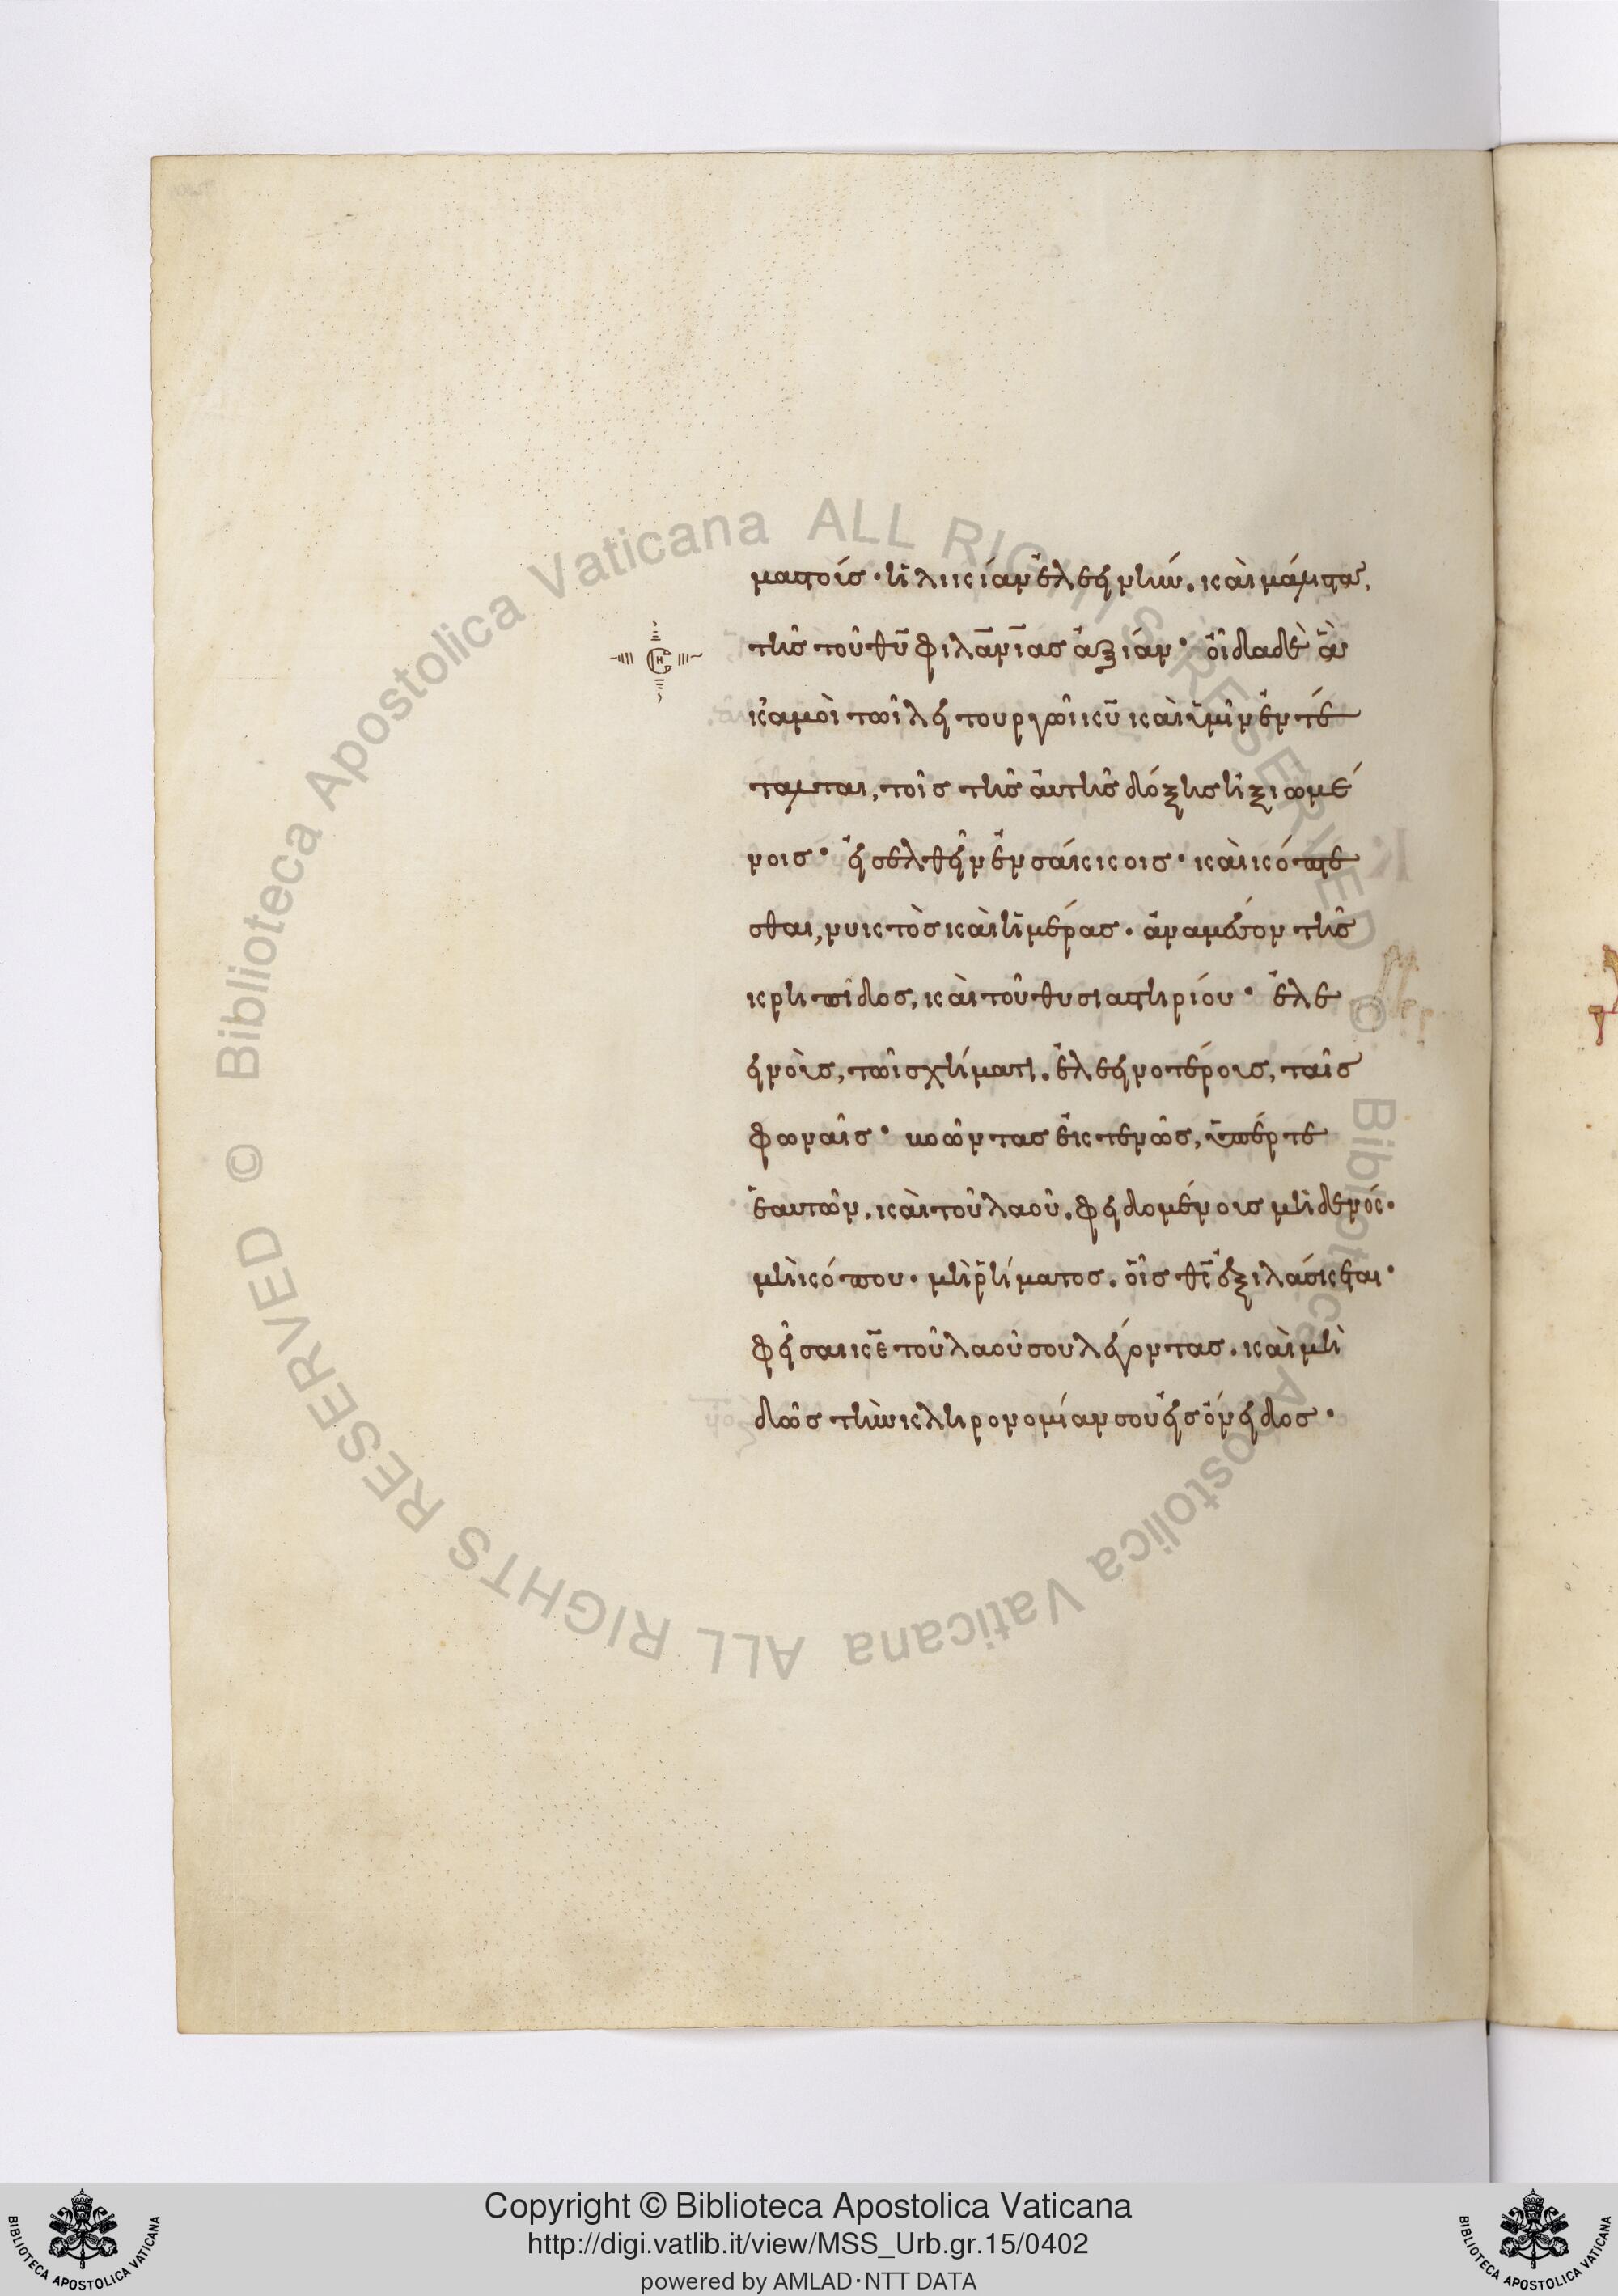 μαστοίς· ἡλικίαν ἐλεεινήν. καὶ μάλιστα,
τῆς τοῦ θυ φιλανιας ἀξίαν· οἶδα δὲ ἃ
κἀμοὶ τῶι λειτουργῶι κυ καὶ ὑμῖν ἐντέ
ταλται, τοῖς τῆς αὐτῆς δόξης ἠξιωμέ
νοις· εἰσελθεῖν ἐν σάκκοις. καὶ κόπτε
σθαι, νυκτὸς καὶ ἡμέρας. ἀναμέσον τῆς
κρηπῖδος, καὶ τοῦ θυσιαστηρίου· ἐλε
εινοὺς, τῶι σχήματι. ἐλεεινοτέρους, ταῖς
φωναῖς· βοῶντας ἐκτενῶς, ὑπέρ τε
ἑαυτῶν, καὶ τοῦ λαοῦ. φειδομένους μηδενός·
μὴ κόπου. μὴ ῥήματος. οἷς θς ἐξιλάσκεται·
φεῖσαι κε τοῦ λαοῦ σου λέγοντας. καὶ μὴ
δῶς τὴν κληρονομίαν σου εἰς ὄνειδος·
Copyright © Biblioteca Apostolica Vaticana
http://digi.vatlib.it/view/MSS_Urb.gr.15/0402
powered by AMLAD·NTT DATA
BIBLIOTECA APOSTOLICA VATICANA
BIBLIOTECA APOSTOLICA VATICANA
© Biblioteca Apostolica Vaticana ALL RIGHTS RESERVED
© Biblioteca Apostolica Vaticana ALL RIGHTS RESERVED